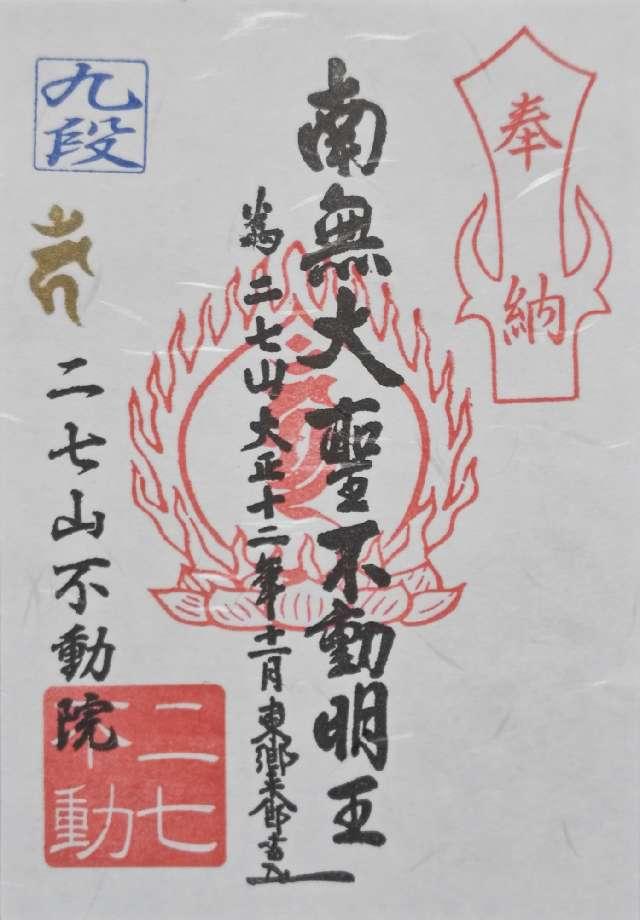 奉納
南無大聖不動明王
為二七山大正十二年十一月東郷
九段
二七山不動院
二七不動